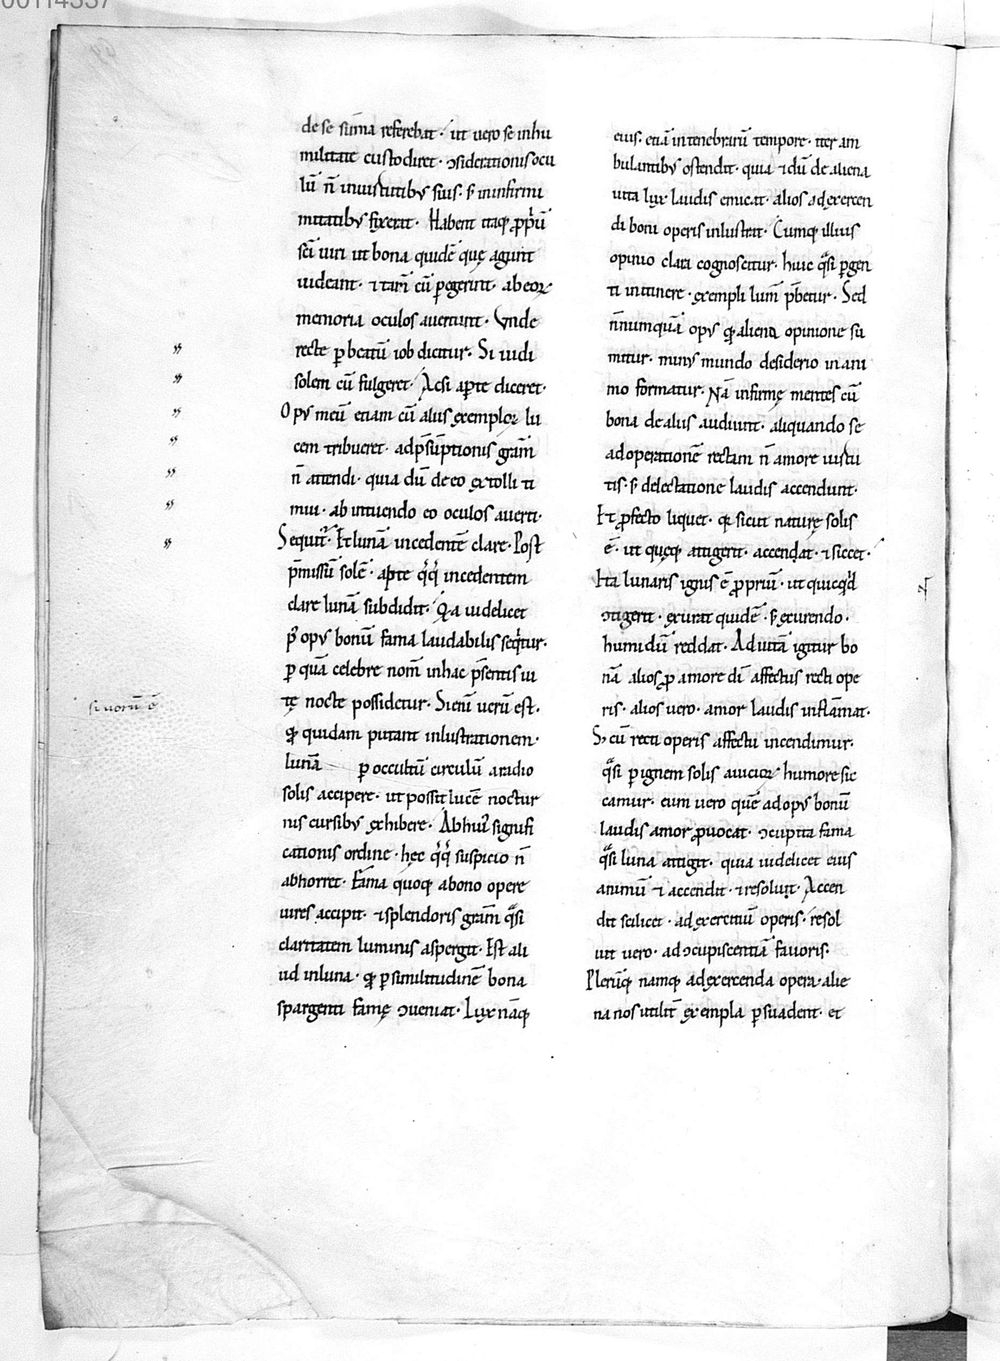 00114337
de se sūma referebat · ut uero se in hu
militate custodiret · ɔsiderationis ocu
lū n̄ in uirtutibꝰ suis · s; in infirmi
mitatibꝰ fixerat · Habent itaq; ꝓpriū
sc̄i uiri ut bona quidē quę agunt
uideant · ⁊ tam̄ cū ꝑegerint · ab eoꝝ
memoria oculos auertunt · Vnde
recte ꝑ beatū iob dicitur · Si uidi
solem cū fulgeret · Ac si aꝑte diceret ·
Opꝰ meū etiam cū aliis exemploꝝ lu
cem tribueret · ad p̄sūptionis gram̄
n̄ attendi · quia dū de eo extolli ti
mui · ab intuendo eo oculos auerti ·
Sequit᷑ · Et lunā incedentē clare · Post
p̄missū solē · aꝑte qͥq incedentem
clare lunā subdidit · Q̇a uidelicet
pꝰ opꝰ bonū fama laudabilis seqͥtur ·
ꝑ quā celebre nom̄ in hac p̄sentis ui
tę nocte possidetur · Si eni uerū est ·
qđ quidam putant inlustrationem ·
si uerū ē
lunā ꝑ occultū circulū a radio
solis accipere · ut possit lucē noctur
nis cursibꝰ exhibere · Ab huiꝰ signifi
cationis ordine · hęc qͥq suspicio n̄
abhorret · Fama quoq; a bono opere
uires accipit · ⁊ splendoris gram̄ qͣsi
claritatem luminis aspergit · Est ali
ud in luna · qđ ꝑ similitudinē bona
spargenti famę ɔueniat · Lux nāq;
eius · etiā in tenebrarū tempore · iter am
bulantibꝰ ostendit · quia ⁊ dū de aliena
uita lux laudis emicat · alios ad exercen
di boni operis inlustrat · Cumq; illius
opinio clara cognoscitur · huic qͣsi ꝑgen
ti in itinere · exempli lum̄ p̄betur · Sed
n̄numquā opꝰ qđ aliena opinione su
mitur · minꝰ mundo desiderio in ani
mo formatur · Nā infirmę mentes cū
bona de aliis audiunt · aliquando se
ad operationē rectam n̄ amore uirtu
tis · s; delectatione laudis accendunt ·
Et ꝓfecto liquet · qđ sicut naturę solis
ē · ut quęq; attigerit · accendat · ⁊ siccet ·
Ita lunaris ignis ē ꝓpriū · ut quicqͥd
ɔtigerit · exurat quidē · s; exurendo ·
humidū reddat · Ad uitā igitur bo
nā alios ꝓ amore di affectus recti ope
ris · alios uero · amor laudis inflam̄at ·
S; cū recti operis affectu incendimur ·
qͣsi ꝑ ignem solis a uicioꝝ humore sic
camur · cum uero quē ad opꝰ bonū
laudis amor ꝓuocat · ɔcupita fama
qͣsi luna attigit · quia uidelicet eius
animū ⁊ accendit · ⁊ resoluit · Accen
dit scilicet · ad exercitiū operis · resol
uit uero · ad ɔcupiscentiā fauoris ·
Plerūq; namq; ad exercenda opera · alie
na nos utilit᷑ exempla ꝑsuadent · et